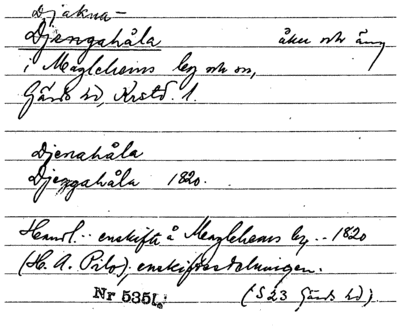 Djakna-
Djengahåla åker och äng
i Maglehems by och sn,
Gärds hd, Krstd. l.
Djenahåla
Djengahåla 1820.
Handl. . enskifte å Maglehems by . . 1820
(H. A. Pilo), enskiftesdelningen.
Nr 535L. (S23 Gärds hd).